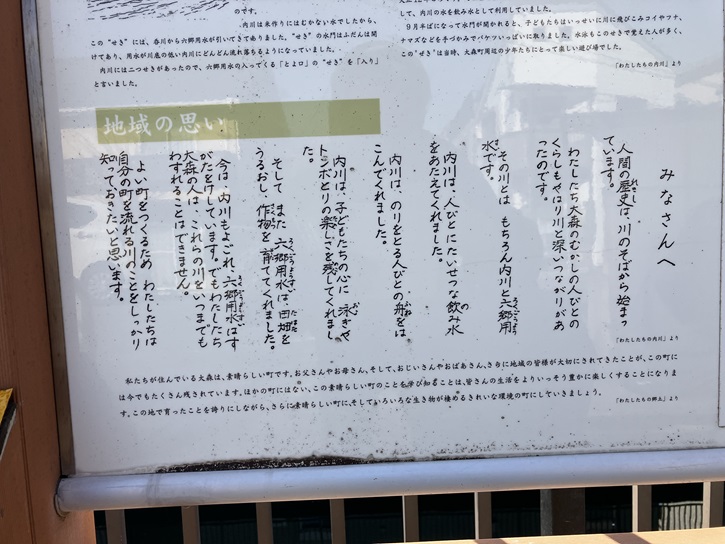 のです。
内川は米作りにはむかない水でしたから、
この"せき"には、呑川から六郷用水が引いてきてありました。"せき"の水門はふだんは開
けてあり、用水が川底の低い内川にどんどん流れ落ちるようになっていました。
内川には二つせきがあったので、六郷用水の入ってくる「とよ口」の"せき"を「入り」
と言いました。
して、内川の水を飲み水として利用していました。
9月半ばになって水門が開かれると、子どもたちはいっせいに川に飛びこみコイやフナ、
ナマズなどを手づかみでバケツいっぱいに取りました。水泳もこのせきで覚えた人が多く、
この"せき"は当時、大森町周辺の少年たちにとって楽しい遊び場でした。
「わたしたちの内川」より
地域の思い
みなさんへ
人間の歴史は、川のそばから始まっ
ています。
わたしたち大森のむかしの人びとの
くらしもやはり川と深いつながりがあ
ったのです。
その川とは もちろん内川と六郷用
水です。
内川は、人びとにたいせつな飲み水
をあたえてくれました。
内川は、のりをとる人びとの舟をは
こんでくれました。
内川は、子どもたちの心に 泳ぎや
トンボとりの楽しさを残してくれまし
た。
そして また 六郷用水は、田畑を
うるおし、作物を育ててくれました。
今は、内川もよごれ、六郷用水はす
がたをけしています。でもわたしたち
大森の人は、これらの川をいつまでも
わすれることはできません。
よい町をつくるため わたしたちは
自分の町を流れる川のことをしっかり
知っておきたいと思います。
「わたしたちの内川」より
私たちが住んでいる大森は、素晴らしい町です。お父さんやお母さん、そして、おじいさんやおばあさん、さらに地域の皆様が大切にされてきたことが、この町に
は今でもたくさん残されています。ほかの町にはない、この素晴らしい町のことを学び知ることは、皆さんの生活をよりいっそう豊かに楽しくすることになりま
す。この地で育ったことを誇りにしながら、さらに素晴らしい町に、そしていろいろな生き物が棲めるきれいな環境の町にしていきましょう。
「わたしたちの郷土」より